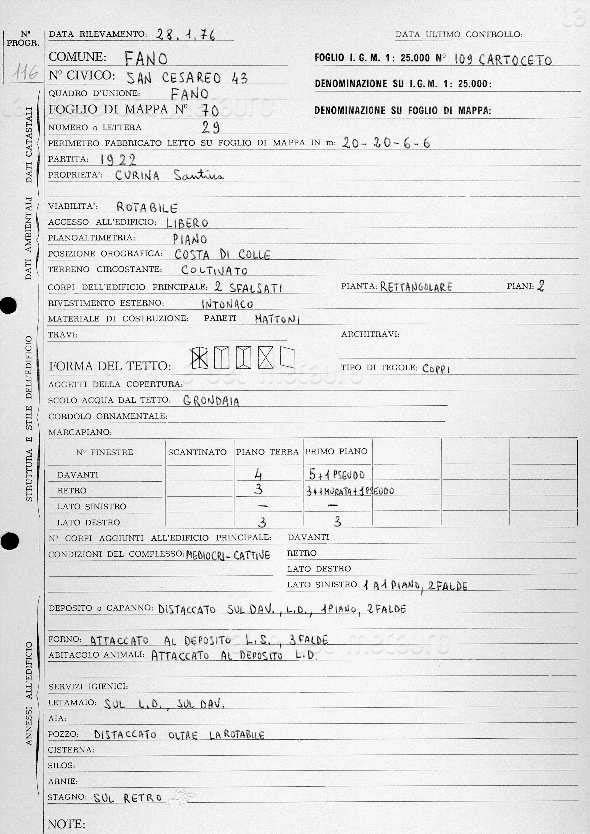 N° PROGR.
116
DATA RILEVAMENTO: 28.1.76 DATA ULTIMO CONTROLLO:
COMUNE: FANO FOGLIO I.G.M. 1:25.000 N° 109 CARTOCETO
N° CIVICO: SAN CESAREO 43 DENOMINAZIONE SU I.G.M. 1:25.000:
QUADRO D'UNIONE: FANO
FOGLIO DI MAPPA N° 70 DENOMINAZIONE SU FOGLIO DI MAPPA:
NUMERO o LETTERA 29
PERIMETRO FABBRICATO LETTO SU FOGLIO DI MAPPA IN m: 20-20-6-6
PARTITA: 1922
PROPRIETA': CURINA Santina
DATI CATASTALI
VIABILITA': ROTABILE
ACCESSO ALL'EDIFICIO: LIBERO
PLANOALTIMETRIA: PIANO
POSIZIONE OROGRAFICA: COSTA DI COLLE
TERRENO CIRCOSTANTE: COLTIVATO
DATI AMBIENTALI
CORPI DELL'EDIFICIO PRINCIPALE: 2 SFALSATI PIANTA: RETTANGOLARE PIANI: 2
RIVESTIMENTO ESTERNO: INTONACO
MATERIALE DI COSTRUZIONE: PARETI MATTONI
TRAVI: ARCHITRAVI:
FORMA DEL TETTO: TIPO DI TEGOLE: COPPI
AGGETTI DELLA COPERTURA:
SCOLO ACQUA DAL TETTO: GRONDAIA
CORDOLO ORNAMENTALE:
MARCAPIANO:
N° FINESTRE SCANTINATO PIANO TERRA PRIMO PIANO
DAVANTI 4 5+1 PSEUDO
RETRO 3 3+1 MURATA+1 PSEUDO
LATO SINISTRO – –
LATO DESTRO 3 3
STRUTTURA E STILE DELL'EDIFICIO
N° CORPI AGGIUNTI ALL'EDIFICIO PRINCIPALE: DAVANTI
CONDIZIONI DEL COMPLESSO: MEDIOCRI-CATTIVE RETRO
LATO DESTRO
LATO SINISTRO 1 A 1 PIANO, 2 FALDE
DEPOSITO o CAPANNO: DISTACCATO SUL DAV., L.D., 1 PIANO, 2 FALDE
FORNO: ATTACCATO AL DEPOSITO L.S., 3 FALDE
ABITACOLO ANIMALI: ATTACCATO AL DEPOSITO L.D.
SERVIZI IGIENICI:
LETAMAIO: SUL L.D., SUL DAV.
AIA:
POZZO: DISTACCATO OLTRE LA ROTABILE
CISTERNA:
SILOS:
ARNIE:
STAGNO: SUL RETRO
ANNESSI ALL'EDIFICIO
NOTE: